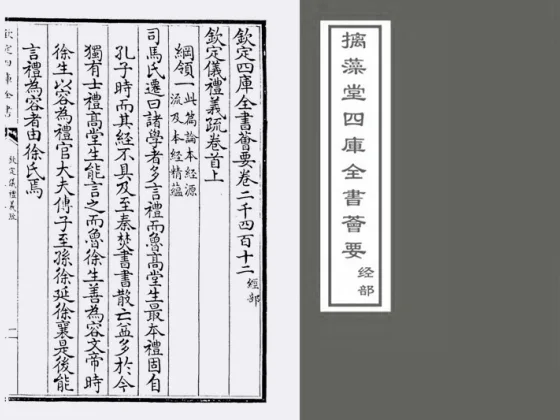 摛藻堂四庫全書薈要
经部
欽定四庫全書薈要卷二千四百十二 經部
欽定儀禮義疏卷首上
綱領一 此篇論本經源
流及本經精蘊
司馬氏遷曰諸學者多言禮而魯高堂生最本禮固自
孔子時而其經不具及至秦焚書書散亡益多於今
獨有士禮高堂生能言之而魯徐生善為容文帝時
徐生以容為禮官大夫傳子至孫徐延徐襄是後能
言禮為容者由徐氏焉
欽定四庫全書
欽定儀禮義疏